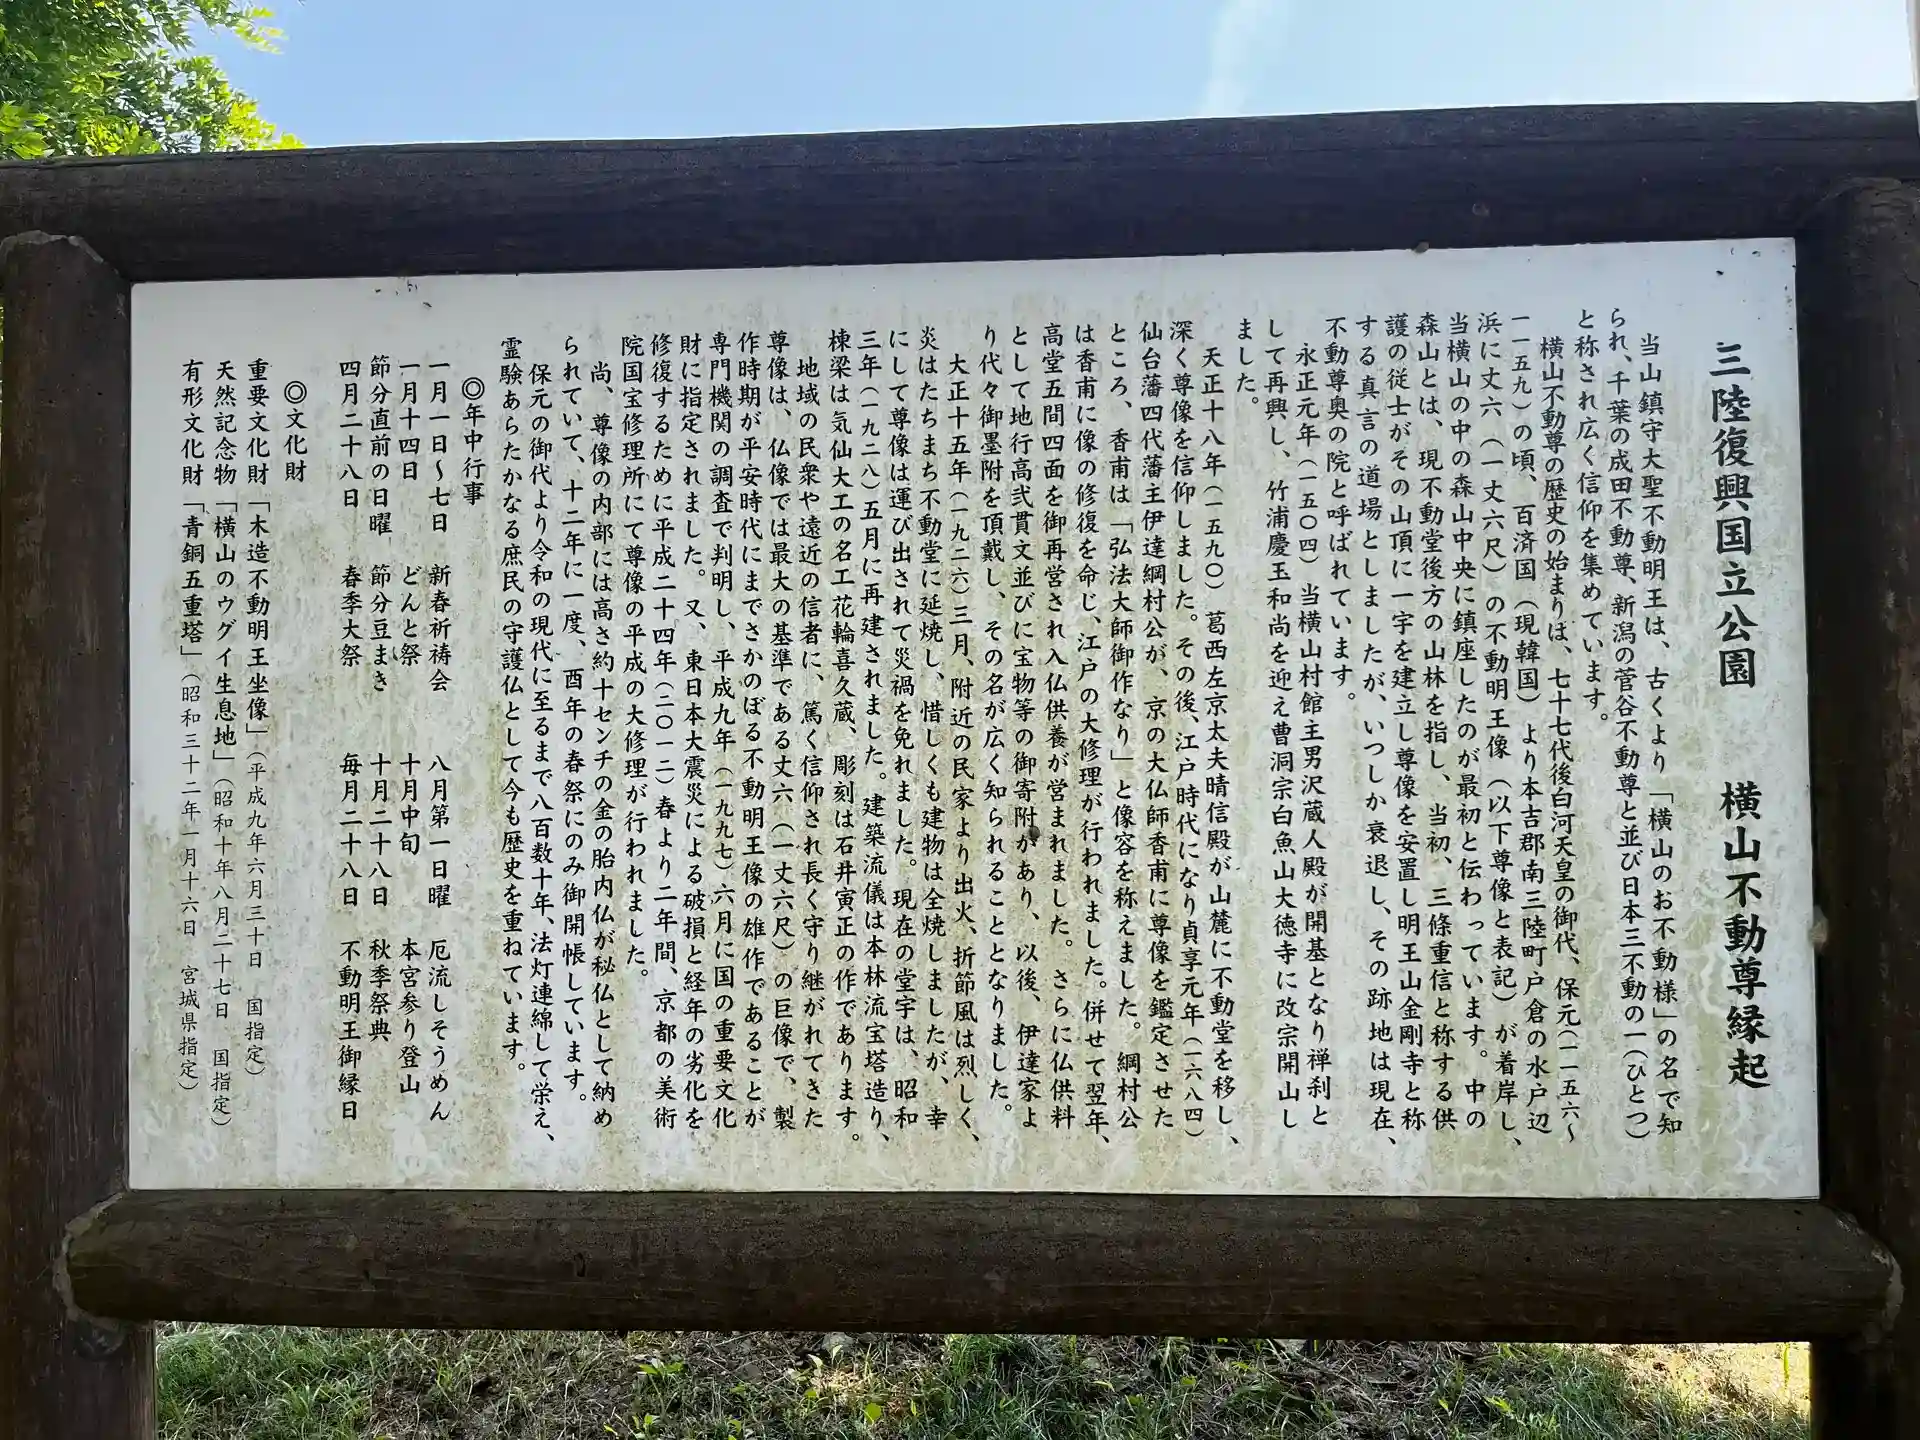 三陸復興国立公園　横山不動尊縁起
当山鎮守大聖不動明王は、古くより「横山のお不動様」の名で知
られ、千葉の成田不動尊、新潟の菅谷不動尊と並び日本三不動の一（ひとつ）
と称され広く信仰を集めています。
横山不動尊の歴史の始まりは、七十七代後白河天皇の御代、保元（一一五六～
一一五九）の頃、百済国（現韓国）より本吉郡南三陸町戸倉の水戸辺
浜に丈六（一丈六尺）の不動明王像（以下尊像と表記）が着岸し、
当横山の中の森山中央に鎮座したのが最初と伝わっています。中の
森山とは、現不動堂後方の山林を指し、当初、三條重信と称する供
護の従士がその山頂に一宇を建立し尊像を安置し明王山金剛寺と称
する真言の道場としましたが、いつしか衰退し、その跡地は現在、
不動尊奥の院と呼ばれています。
永正元年（一五〇四）当横山村館主男沢蔵人殿が開基となり禅刹と
して再興し、竹浦慶玉和尚を迎え曹洞宗白魚山大徳寺に改宗開山し
ました。
天正十八年（一五九〇）葛西左京太夫晴信殿が山麓に不動堂を移し、
深く尊像を信仰しました。その後、江戸時代になり貞享元年（一六八四）
仙台藩四代藩主伊達綱村公が、京の大仏師香甫に尊像を鑑定させた
ところ、香甫は「弘法大師御作なり」と像容を称えました。綱村公
は香甫に像の修復を命じ、江戸の大修理が行われました。併せて翌年、
高堂五間四面を御再営され入仏供養が営まれました。さらに仏供料
として地行高弐貫文並びに宝物等の御寄附があり、以後、伊達家よ
り代々御墨附を頂戴し、その名が広く知られることとなりました。
大正十五年（一九二六）三月、附近の民家より出火、折節風は烈しく、
炎はたちまち不動堂に延焼し、惜しくも建物は全焼しましたが、幸
にして尊像は運び出されて災禍を免れました。現在の堂宇は、昭和
三年（一九二八）五月に再建されました。建築流儀は本林流宝塔造り、
棟梁は気仙大工の名工花輪喜久蔵、彫刻は石井寅正の作であります。
地域の民衆や遠近の信者に、篤く信仰され長く守り継がれてきた
尊像は、仏像では最大の基準である丈六（一丈六尺）の巨像で、製
作時期が平安時代にまでさかのぼる不動明王像の雄作であることが
専門機関の調査で判明し、平成九年（一九九七）六月に国の重要文化
財に指定されました。又、東日本大震災による破損と経年の劣化を
修復するために平成二十四年（二〇一二）春より二年間、京都の美術
院国宝修理所にて尊像の平成の大修理が行われました。
尚、尊像の内部には高さ約十センチの金の胎内仏が秘仏として納め
られていて、十二年に一度、酉年の春祭にのみ御開帳しています。
保元の御代より令和の現代に至るまで八百数十年、法灯連綿して栄え、
霊験あらたかなる庶民の守護仏として今も歴史を重ねています。
◎年中行事
一月一日～七日　新春祈祷会　八月第一日曜　厄流しそうめん
一月十四日　どんと祭　十月中旬　本宮参り登山
節分直前の日曜　節分豆まき　十月二十八日　秋季祭典
四月二十八日　春季大祭　毎月二十八日　不動明王御縁日
◎文化財
重要文化財「木造不動明王坐像」（平成九年六月三十日　国指定）
天然記念物「横山のウグイ生息地」（昭和十年八月二十七日　国指定）
有形文化財「青銅五重塔」（昭和三十二年一月十六日　宮城県指定）